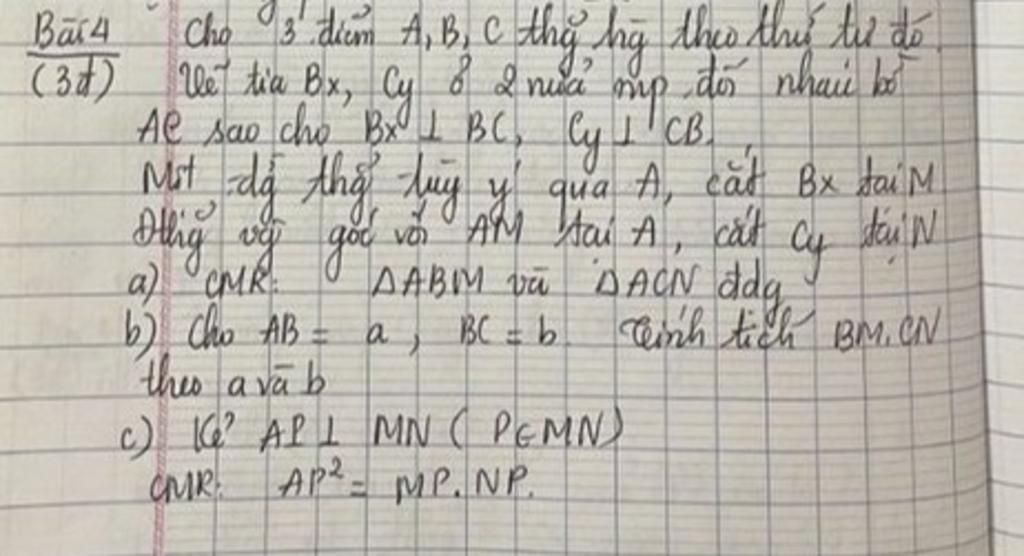 Bài 4 Cho 3 điểm A, B, C thg hg theo thứ tự đó.
(3đ) Vẽ tia Bx, Cy ở 2 nửa mp đối nhau bờ
AC sao cho Bx ⊥ BC, Cy ⊥ CB.
Một đg thg tùy ý qua A, cắt Bx tại M
Đthg vg góc với AM tại A, cắt Cy tại N
a) CMR: ΔABM và ΔACN đdg
b) Cho AB = a, BC = b. Tính tích BM.CN
theo a và b
c) Kẻ AP ⊥ MN (P∈MN)
CMR: AP² = MP.NP.